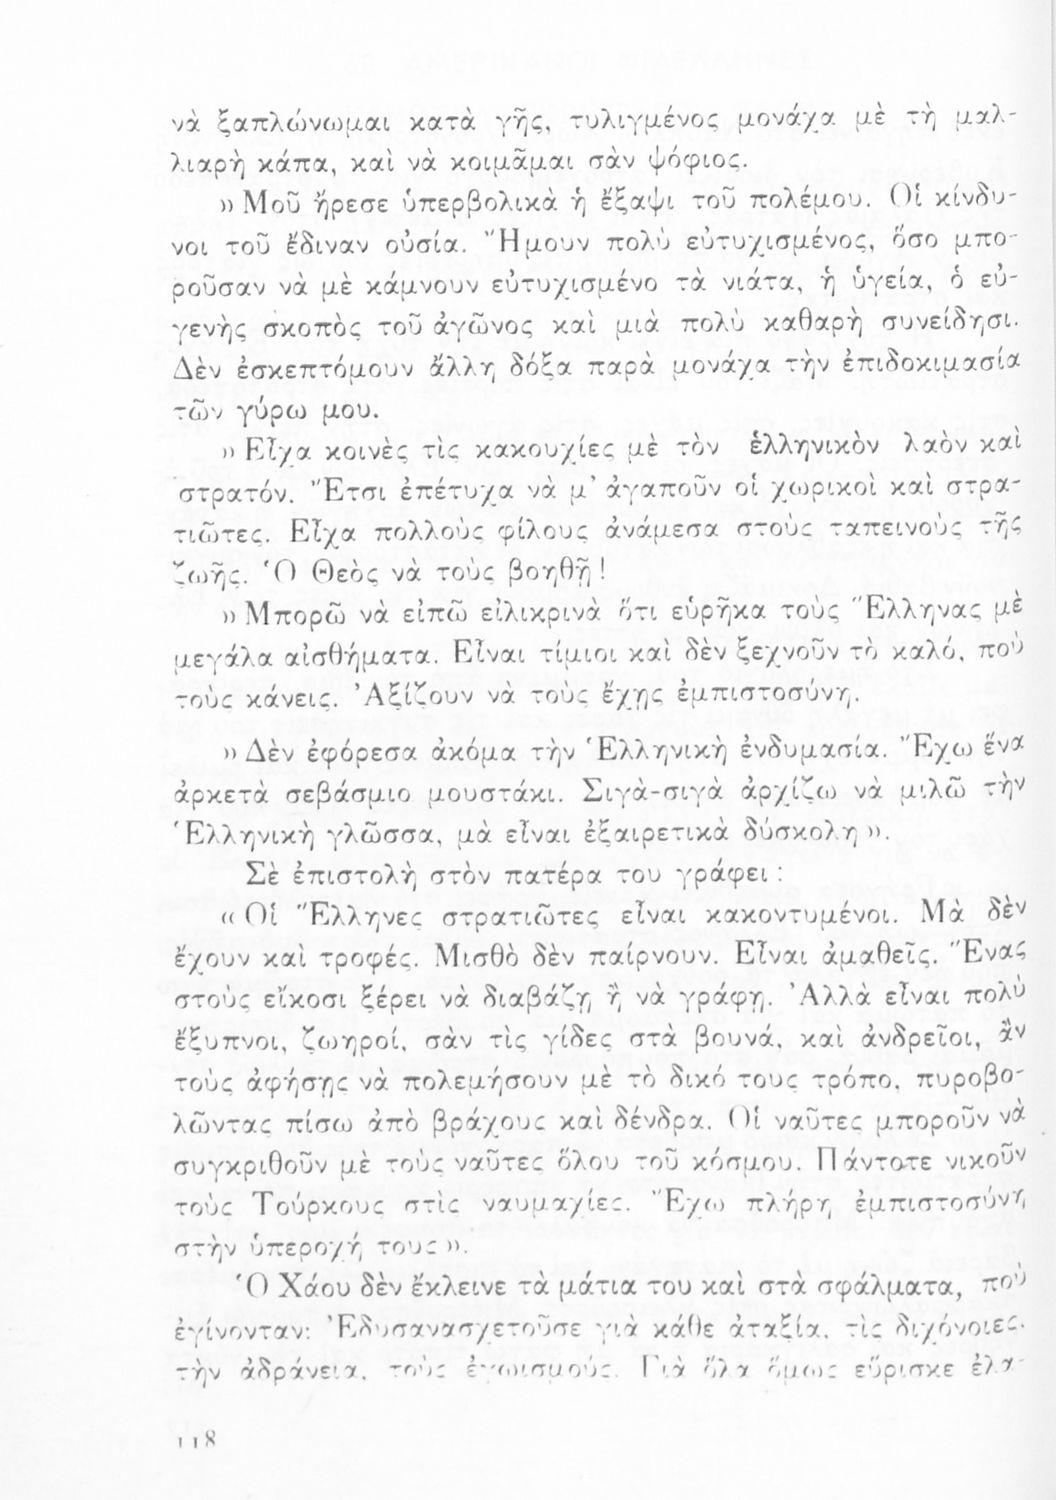 νὰ ξαπλώνωμαι κατὰ γῆς, τυλιγμένος μονάχα μὲ τὴ μαλ-
λιαρὴ κάπα, καὶ νὰ κοιμᾶμαι σὰν ψόφιος.
» Μοῦ ἤρεσε ὑπερβολικὰ ἡ ἔξαψι τοῦ πολέμου. Οἱ κίνδυ-
νοι τοῦ ἔδιναν οὐσία. Ἤμουν πολὺ εὐτυχισμένος, ὅσο μπο-
ροῦσαν νὰ μὲ κάμνουν εὐτυχισμένο τὰ νιάτα, ἡ ὑγεία, ὁ εὐ-
γενὴς σκοπὸς τοῦ ἀγῶνος καὶ μιὰ πολὺ καθαρὴ συνείδησι.
Δὲν ἐσκεπτόμουν ἄλλη δόξα παρὰ μονάχα τὴν ἐπιδοκιμασία
τῶν γύρω μου.
» Εἶχα κοινὲς τὶς κακουχίες μὲ τὸν ἑλληνικὸν λαὸν καὶ
στρατόν. Ἔτσι ἐπέτυχα νὰ μ' ἀγαποῦν οἱ χωρικοὶ καὶ στρα-
τιῶτες. Εἶχα πολλοὺς φίλους ἀνάμεσα στοὺς ταπεινοὺς τῆς
ζωῆς. Ὁ Θεὸς νὰ τοὺς βοηθῇ!
» Μπορῶ νὰ εἰπῶ εἰλικρινὰ ὅτι εὑρῆκα τοὺς Ἕλληνας μὲ
μεγάλα αἰσθήματα. Εἶναι τίμιοι καὶ δὲν ξεχνοῦν τὸ καλό, ποὺ
τοὺς κάνεις. Ἀξίζουν νὰ τοὺς ἔχῃς ἐμπιστοσύνη.
» Δὲν ἐφόρεσα ἀκόμα τὴν Ἑλληνικὴ ἐνδυμασία. Ἔχω ἕνα
ἀρκετὰ σεβάσμιο μουστάκι. Σιγὰ-σιγὰ ἀρχίζω νὰ μιλῶ τὴν
Ἑλληνικὴ γλῶσσα, μὰ εἶναι ἐξαιρετικὰ δύσκολη ».
Σὲ ἐπιστολὴ στὸν πατέρα του γράφει :
« Οἱ Ἕλληνες στρατιῶτες εἶναι κακοντυμένοι. Μὰ δὲν
ἔχουν καὶ τροφές. Μισθὸ δὲν παίρνουν. Εἶναι ἀμαθεῖς. Ἕνας
στοὺς εἴκοσι ξέρει νὰ διαβάζῃ ἢ νὰ γράφῃ. Ἀλλὰ εἶναι πολὺ
ἔξυπνοι, ζωηροί, σὰν τὶς γίδες στὰ βουνά, καὶ ἀνδρεῖοι, ἂν
τοὺς ἀφήσῃς νὰ πολεμήσουν μὲ τὸ δικό τους τρόπο, πυροβο-
λῶντας πίσω ἀπὸ βράχους καὶ δένδρα. Οἱ ναῦτες μποροῦν νὰ
συγκριθοῦν μὲ τοὺς ναῦτες ὅλου τοῦ κόσμου. Πάντοτε νικοῦν
τοὺς Τούρκους στὶς ναυμαχίες. Ἔχω πλήρη ἐμπιστοσύνη
στὴν ὑπεροχή τους ».
Ὁ Χάου δὲν ἔκλεινε τὰ μάτια του καὶ στὰ σφάλματα, ποὺ
ἐγίνονταν: Ἐδυσανασχετοῦσε γιὰ κάθε ἀταξία, τὶς διχόνοιες,
τὴν ἀδράνεια, τοὺς ἐγωισμούς. Γιὰ ὅλα ὅμως εὕρισκε ἐλα-
118